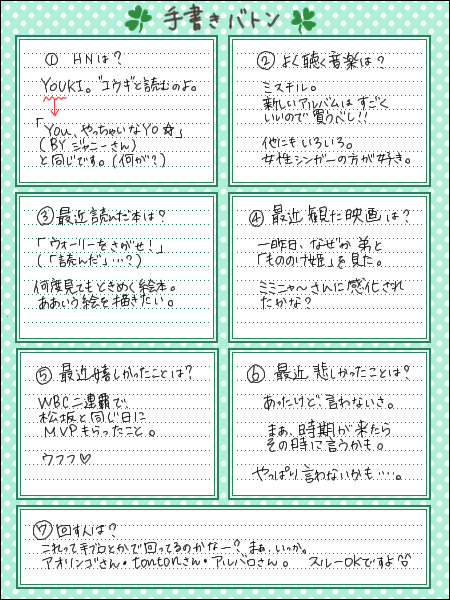 手書きバトン
① HNは?
YOUKI。"ユウギと読むのよ。
「You、やっちゃいなYO☆」
(BY ジャニーさん)
と同じです。(何が?)
② よく聴く音楽は?
ミスチル。
新しいアルバムはすごく
いいので買うべし!!
他にもいろいろ。
女性シンガーの方が好き。
③ 最近読んだ本は?
「ウォーリーをさがせ!」
(「読んだ」…?)
何度見てもときめく絵本。
ああいう絵を描きたい。
④ 最近観た映画は?
一昨日、なぜか弟と
「もののけ姫」を見た。
ミミニャ〜さんに感化され
たかな?
⑤ 最近嬉しかったことは?
WBC二連覇で、
松坂と同じ日に
MVPもらったこと。
ウフフ♡
⑥ 最近悲しかったことは?
あったけど、言わないさ。
まぁ、時期が来たら
その時に言うかも。
やっぱり言わないかも‥‥。
⑦ 回す人は?
これって手ブロとかで回ってるのかなー?まぁ、いっか。
アオリンゴさん・tontonさん・アルバロさん。 スルーOKですよ